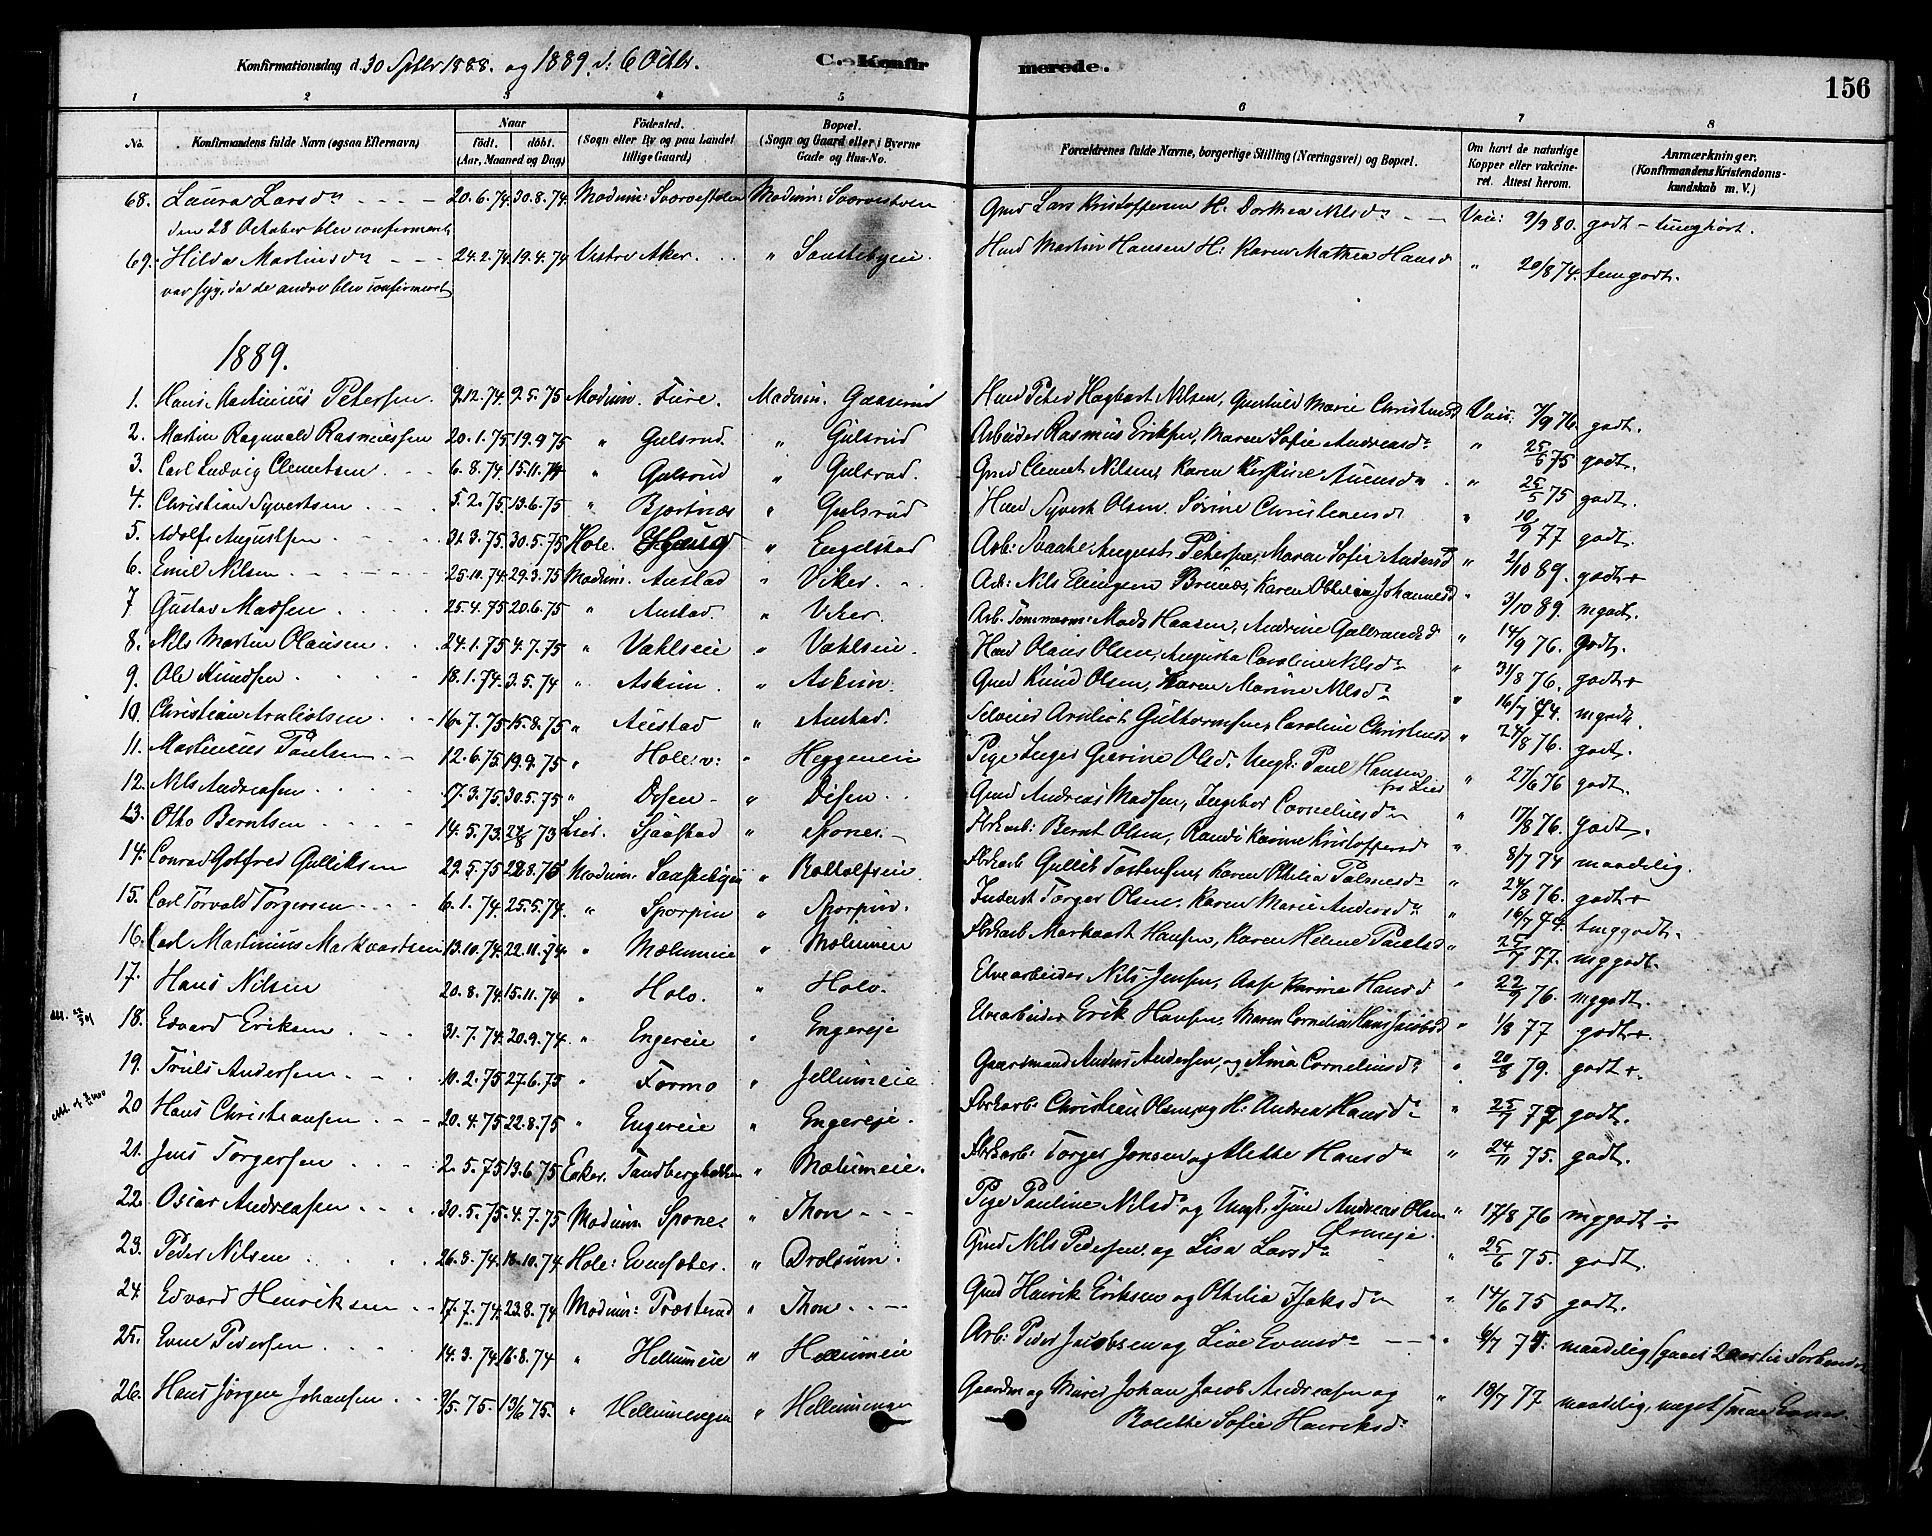 Konfirmationsdag d. 30 Sptbr 1888. og 1889. d: 6 Octbr. C. Konfirmerede. 156
1 2 3 4 5 6 7 8
No. Konfirmandens fulde Navn (ogsaa Efternavn) Naar födt. döbt. (Aar, Maaned og Dag) Födested. (Sogn eller By og paa Landet tillige Gaard) Bopæl. (Sogn og Gaard eller i Byerne Gade og Hus-No. Forældrenes fulde Navne, borgerlige Stilling (Næringsvei) og Bopæl. Om havt de naturlige Kopper eller vakcineret. Attest herom. Anmærkninger. (Konfirmandens Kristendomskundskab m. V.)
68. Laura Larsdr 20.6.74. 30.8.74. Modum: Modum: Gmd Lars Kristoffersen H: Dorthea Nilsdr Vac: 9/9 80. godt - tunghørt.
den 28 October blev confirmeret
69. Hilda Martinsdr 24.2.74. 19.4.74 Vestre Aker. " Hmd Martin Hansen H: Karen Mathea Hansd " 20/8 74. temgodt.
var syg, da de andre blev confirmeret
1889.
1. Hans Martinius Petersen. 9.12.74. 9.5.75 Modum. Fure. Modum. Gaaserud Hmd Peter Hagbart Nilsen, Gunhild Marie Christensd Vac. 7/9 76. godt.
2. Martin Ragnvald Rasmussen 20.1.75. 19.9.75 " Gulsrud. " Gulsrud Arbeider Rasmus Eriksen, Maren Sofie Andreasdr " 25/6 75 godt.
3. Carl Ludvig Clemetsen. 6.8.74. 15.11.74 " Gulsrud " Gulsrud. Gmd Clemet Nilsen, Karen Kirstine Auensdr " 25/5 75 godt.
4. Christian Syvertsen 5.2.75. 13.6.75 " Bjertnæs " Gulsrud Hmd Syvert Olsen. Sørine Christensd " 10/9 77 godt.
5. Adolf Augustsen 31.3.75. 30.5.75 Hole. Haug " Engelstad Arb: August Petersen, Maren Sofie Andersd " 2/10 89. godt+
6. Emil Nilsen 25.10.74. 29.3.75 Modum. Austad " Viker. Arb: Nils Ellingsen Brunæs, Karen Othelia Johannesd " 3/10 89. mgodt.
7 Gustav Madsen 25.4.75. 20.6.75 " Austad. " Viker. Arb. Tømmerm: Mads Hansen, Andrine Gulbrandsd " 14/9 76. godt.
8. Nils Martin Olausen 24.1.75. 4.7.75 " Vahlseie " Vahlseie. Hmd Olaus Olsen, Augusta Caroline Nilsdr " 31/8 76. godt+
9. Ole Knudsen 18.1.74. 3.5.74 " Askim. " Askim. Gmd Knud Olsen, Karen Marine Nilsdr " 16/7 74. mgodt.
10. Christian Arnliotsen 16.7.75. 15.8.75 " Austad " Austad. Selveier Arnliot Guttormsen, Caroline Christensd " 24/8 76. godt.
11. Martinius Paulsen 12.6.75. 19.9.75 " Hole v: " Heggeneie Pige Inger Gurine Olsd. Ungk: Paul Hansen fra Lier " 27/6 76 godt.
12. Nils Andreasen 17.3.75. 30.5.75 " Disen " Disen Gmd Andreas Madsen, Ingebor Corneliusdr " 17/8 76. godt.
13. Otto Berntsen 14.5.73. 73 Lier. Sjaastad " Spones. Fbrkarb: Bernt Olsen, Randi Karine Kristoffersd " 8/7 74 maadelig.
14. Conrad Gotfred Gulliksen 29.5.75 22.8.75 Modum: " Rollolfseie. Fbrkarb Gullik Tostensen, Karen Othilia Palmesdr " 24/8 76. godt+
15. Carl Torvald Torgersen 6.1.74. 25.5.74. " Sporpin " Sporpin. Inderst Torger Olsen, Karen Marie Andersdr " 16/7 74. temggodt.
16. Carl Martinius Markvartsen 13.10.74. 22.11.74. " Mælumeie " Mælumeie Fbrkarb Markvart Hansen, Karen Helene Paulsd " 25/7 77. mggodt.
17. Hans Nilsen 20.8.74. 15.11.74 " Hole. " Hole. Elvearbeider Nils Jensen, Aase Karine Hansd " 22/9 76. mggodt.
18. Edvard Eriksen 31.7.74. 20.9.74 " Engereie " Engereje Elvearbeider Erik Hansen, Maren Cornelia Hans Jacobsd " 1/8 77 godt+.
19. Truls Andersen 10.2.75. 27.6.75 " Formo " Jellumeie Gaardmand Anders Andersen, og Anna Corneliusdr " 20/8 79. godt+.
20 Hans Christiansen 20.4.75. 22.8.75 " Engereie " Engereje. Fbrkarb: Christian Olsen og H: Andrea Hansdr " 25/7 77 godt.
21. Jens Torgersen 2.5.75 13.6.75 Eeker. Tandbergbakken " Mælumeie. Fbrkarb: Torger Jensen og Mette Hansdr " 24/11 75. godt.
22. Oscar Andreasen 30.5.75. 4.7.75 Modum Spone. " Thon Pige Pauline Nilsd og Ungk. Tjener Andreas Olsen " 17/8 76 mggodt ÷
23. Peder Nilsen 26.8.74. 18.10.74 Hole: " Drolsum. Gmd Nils Pedersen og Lisa Larsdr " 25/6 75. godt.
24. Edvard Henriksen 17.7.74. 23.8.74 Modum: Træterud " Thon Gmd Henrik Eriksen og Othilia Isaksdr " 14/6 75 godt.
25. Even Pedersen 14.3.74. 16.8.74 " Hellumeie " Hellumeie Arb: Peder Jacobsen og Live Evensdr " 6/7 75. maadelig (gaaet 2 aar til Forberedelse
26. Hans Jørgen Johansen 9/5.75. 13/6 75. " Hellumengen " Hellumengen Gaardm og Murer Johan Jacob Andreasen og " 19/7 77 maadelig, meget smaa Evner.
Bolette Sofie Henriksdr